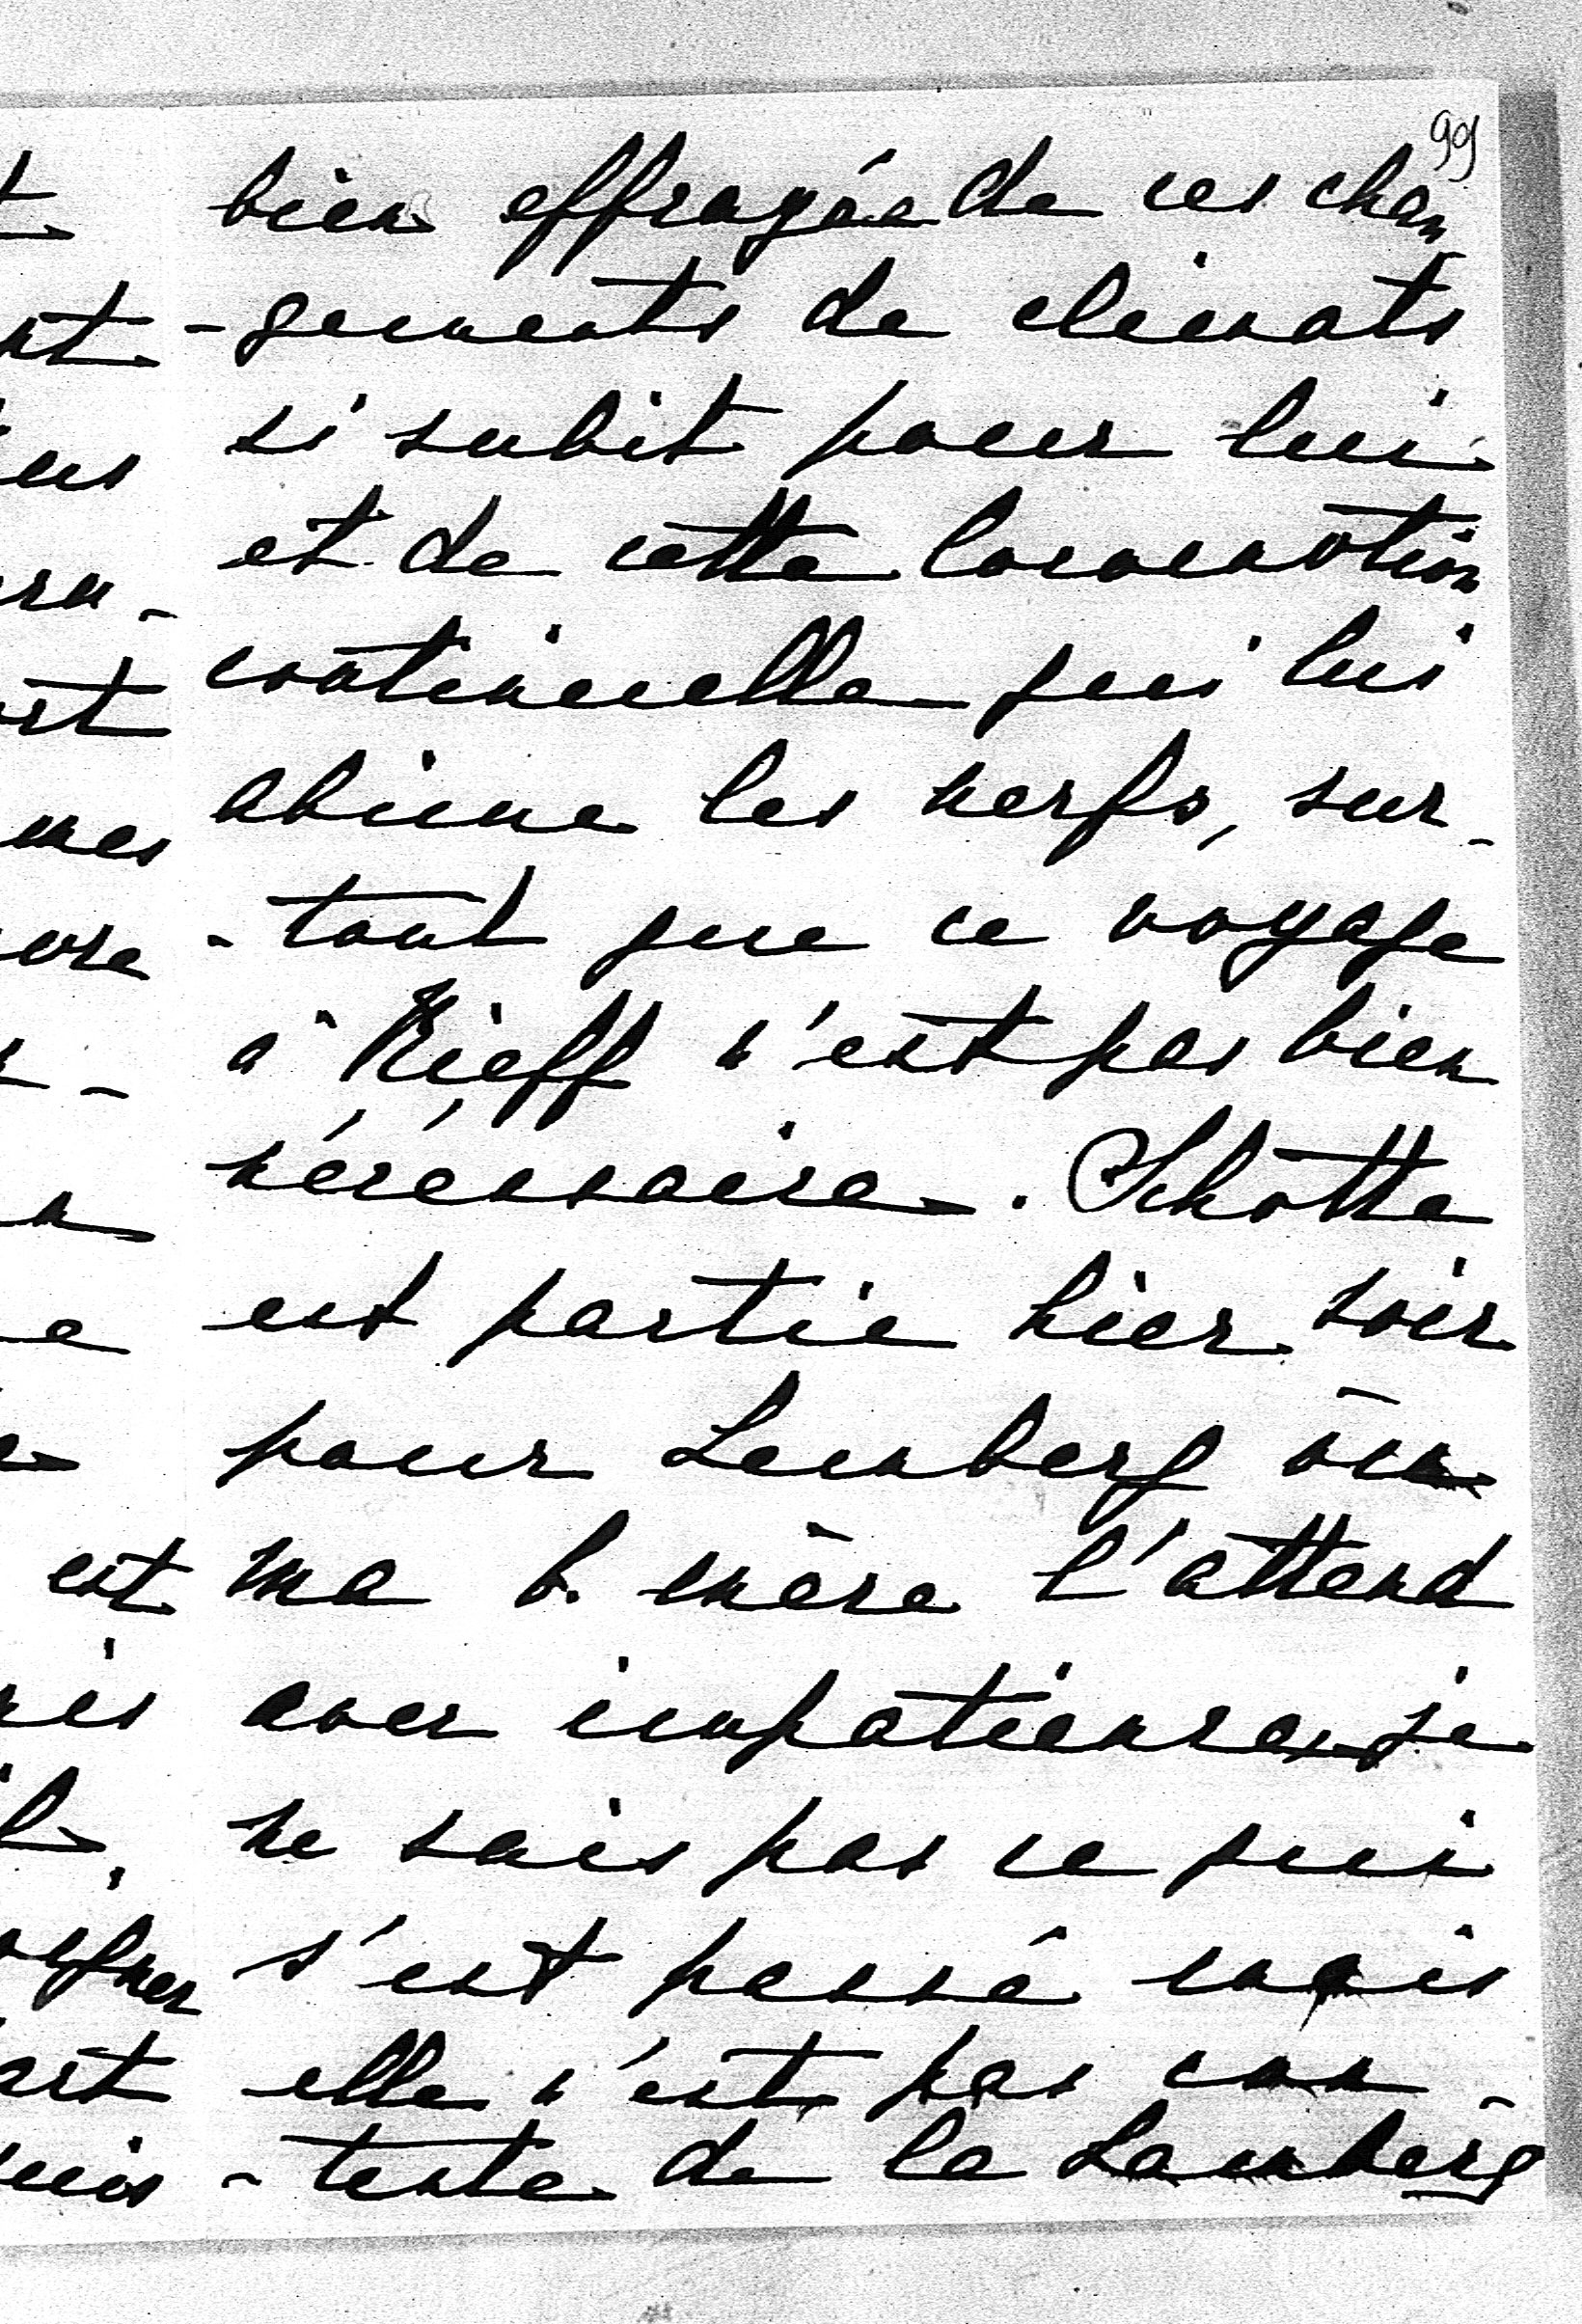 99
bien effrayée de ces chan
-gements de climats
si subit pour lui
et de cette locomotion
continuelle qui lui
abime les nerfs, sur-
-tout que ce voyage
à Kieff n'est pas bien
nécéssaire. Schotte
est partie hier soir
pour Lemberg où
ma b. mère l'attend
avec impatience, je
ne sais pas ce qui
s'est passé mais
elle n'est pas con-
-tente de la Lamberg
est